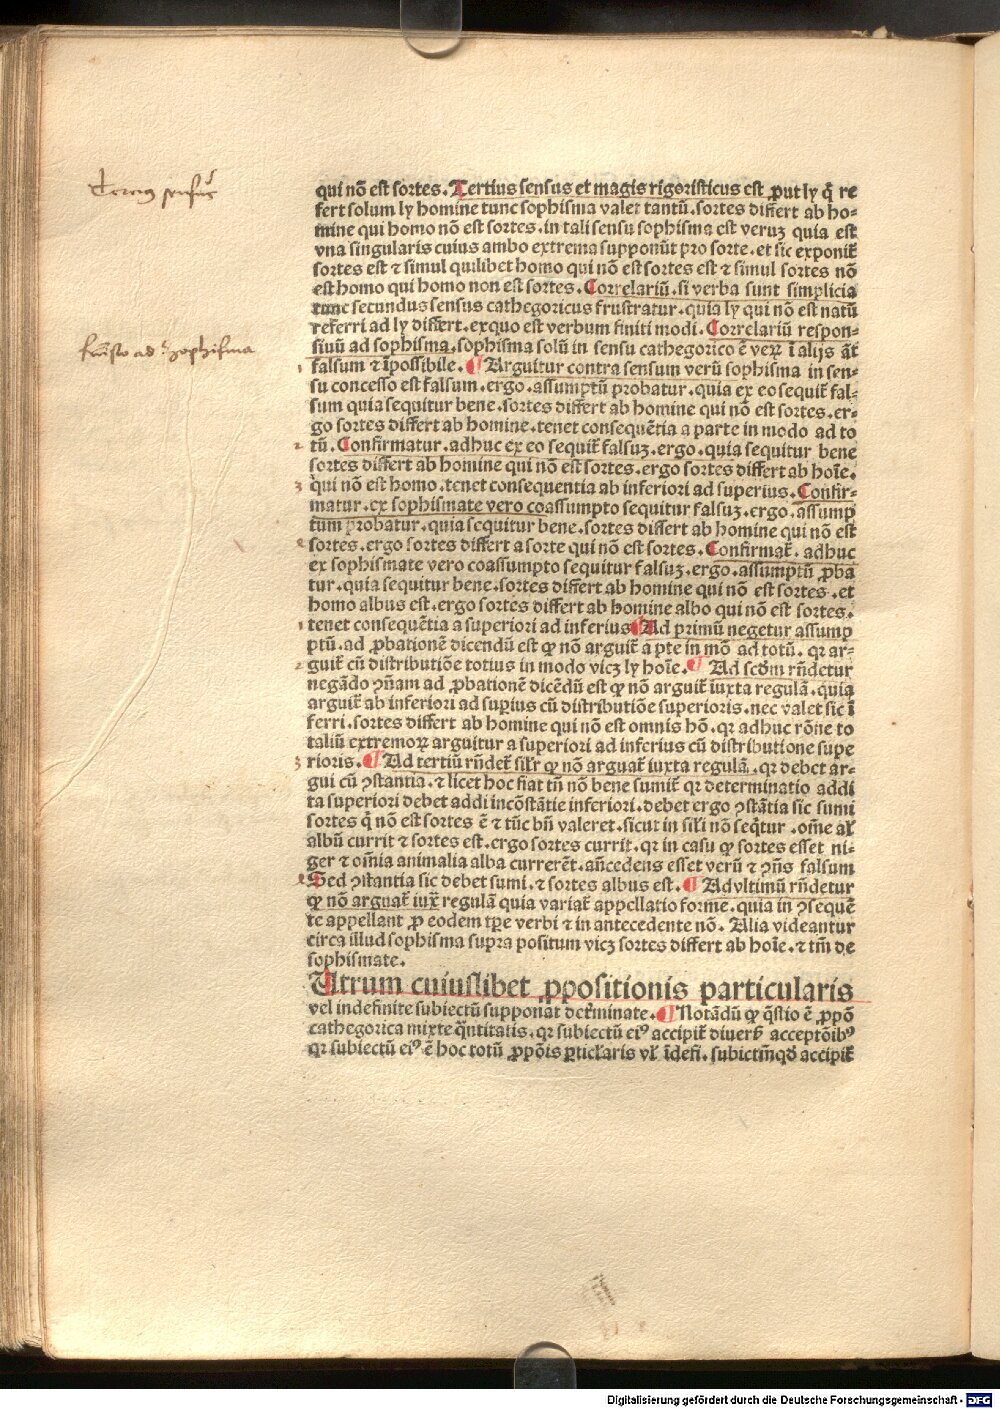 qui nō est sortes. Tertius sensus et magis rigoristicus est ꝓut ly q̄ re
fert solum ly homine tunc sophisma valet tantū. sortes differt ab ho-
mine qui homo nō est sortes. in tali sensu sophisma est veruꝫ quia est
vna singularis cuius ambo extrema supponūt pro sorte. et sic exponit᷑
sortes est ⁊ simul quilibet homo qui nō est sortes est ⁊ simul sortes nō
est homo qui homo non est sortes. Correlariū. si verba sunt simplicia
tunc secundus sensus cathegoricus frustratur. quia ly qui nō est natū
referri ad ly differt. ex quo est verbum finiti modi. Correlariū respon-
siuū ad sophisma. sophisma solū in sensu cathegorico ē veꝝ ī alijs āt
falsum ⁊ īpossibile. ¶ Arguitur contra sensum verū sophisma in sen-
su concesso est falsum. ergo. assumptū probatur. quia ex eo sequit᷑ fal-
sum quia sequitur bene. sortes differt ab homine qui nō est sortes. er-
go sortes differt ab homine. tenet consequētia a parte in modo ad to
tū. Confirmatur. adhuc ex eo sequit᷑ falsuꝫ. ergo. quia sequitur bene
sortes differt ab homine qui nō est sortes. ergo sortes differt ab hoīe.
qui nō est homo. tenet consequentia ab inferiori ad superius. Confir-
matur. ex sophismate vero coassumpto sequitur falsuꝫ. ergo. assump
tum probatur. quia sequitur bene. sortes differt ab homine qui nō est
sortes. ergo sortes differt a sorte qui nō est sortes. Confirmat᷑. adhuc
ex sophismate vero coassumpto sequitur falsuꝫ. ergo. assumptū ꝓba
tur. quia sequitur bene. sortes differt ab homine qui nō est sortes. et
homo albus est. ergo sortes differt ab homine albo qui nō est sortes.
tenet consequētia a superiori ad inferius ¶ Ad primū negetur assump
ptū. ad ꝓbationē dicendū est ꝙ nō arguit᷑ a ꝑte in mō ad totū. qꝛ ar-
guit᷑ cū distributiōe totius in modo vicꝫ ly hoīe. ¶ Ad scd̄m rn̄detur
negādo ꝯn̄am ad ꝓbationē dicēdū est ꝙ nō arguit᷑ iuxta regulā. quia
arguit᷑ ab inferiori ad suꝑius cū distributiōe superioris. nec valet sic ī
ferri. sortes differt ab homine qui nō est omnis hō. qꝛ adhuc rōne to
taliū extremoꝝ arguitur a superiori ad inferius cū distributione supe
rioris. ¶ Ad tertiū rn̄det᷑ sil̄r ꝙ nō arguat᷑ iuxta regulā. qꝛ debet ar-
gui cū ꝯstantia. ⁊ licet hoc fiat tn̄ nō bene sumit᷑ qꝛ determinatio addi
ta superiori debet addi incōstātie inferiori. debet ergo ꝯstātia sic sumi
sortes q̄ nō est sortes ē ⁊ tūc bn̄ valeret. sicut in sil̄i nō seq̄tur. om̄e al̄
albū currit ⁊ sortes est. ergo sortes currit. qꝛ in casu ꝙ sortes esset ni-
ger ⁊ om̄ia animalia alba currerēt. an̄cedens esset verū ⁊ ꝯn̄s falsum
Sed ꝯstantia sic debet sumi. ⁊ sortes albus est. ¶ Ad vltimū rn̄detur
ꝙ nō arguat᷑ iux̄ regulā quia variat᷑ appellatio forme. quia in ꝯsequē
te appellant ꝓ eodem tꝑe verbi ⁊ in antecedente nō. Alia videantur
circa illud sophisma supra positum vicꝫ sortes differt ab hoīe. ⁊ tm̄ de
sophismate.
Utrum cuiuslibet ꝓpositionis particularis
vel indefinite subiectū supponat det᷑minate. ¶ Notādū ꝙ q̄stio ē ꝓpō
cathegorica mixte q̄ntitatis. qꝛ subiectū eiꝰ accipit᷑ diuers̄ acceptōibꝰ
qꝛ subiectū eiꝰ ē hoc totū ꝓpōis ꝑticl̄aris vl̄ īdefi. subiectm̄qꝫ accipit᷑
Tercius sensus
ad sophisma
Digitalisierung gefördert durch die Deutsche Forschungsgemeinschaft - DFG